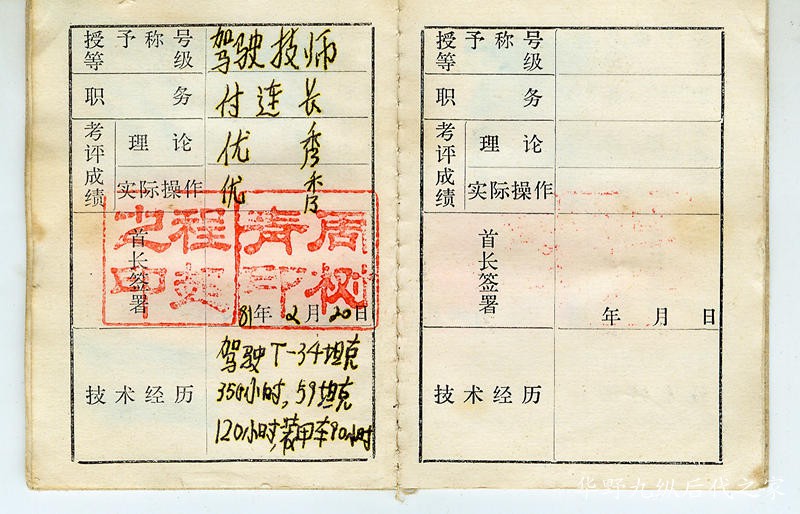 授予称号等级 驾驶技师
职务 付连长
考评成绩 理论 优秀
实际操作 优秀
首长签署
周树青印
程
之印
81年2月20日
技术经历 驾驶T-34坦克
350小时,59坦克
120小时,装甲车90小时
授予称号等级
职务
考评成绩 理论
实际操作
首长签署
年 月 日
技术经历
华野九纵后代之家